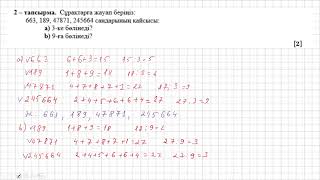 2 – тапсырма. Сұрақтарға жауап беріңіз:
663, 189, 47871, 245664 сандарының қайсысы:
а) 3-ке бөлінеді?
b) 9-ға бөлінеді?
[2]
а) √663 6+6+3=15 15:3=5
√189 1+8+9=18 18:3=6
√47871 4+7+8+7+1=27 27:3=9
√245664 2+4+5+6+6+4=27 27:3=9
663, 189, 47871, 245664
b) √189 1+8+9=18 18:9=2
√47871 4+7+8+7+1=27 27:9=3
√245664 2+4+5+6+6+4=27 27:9=3